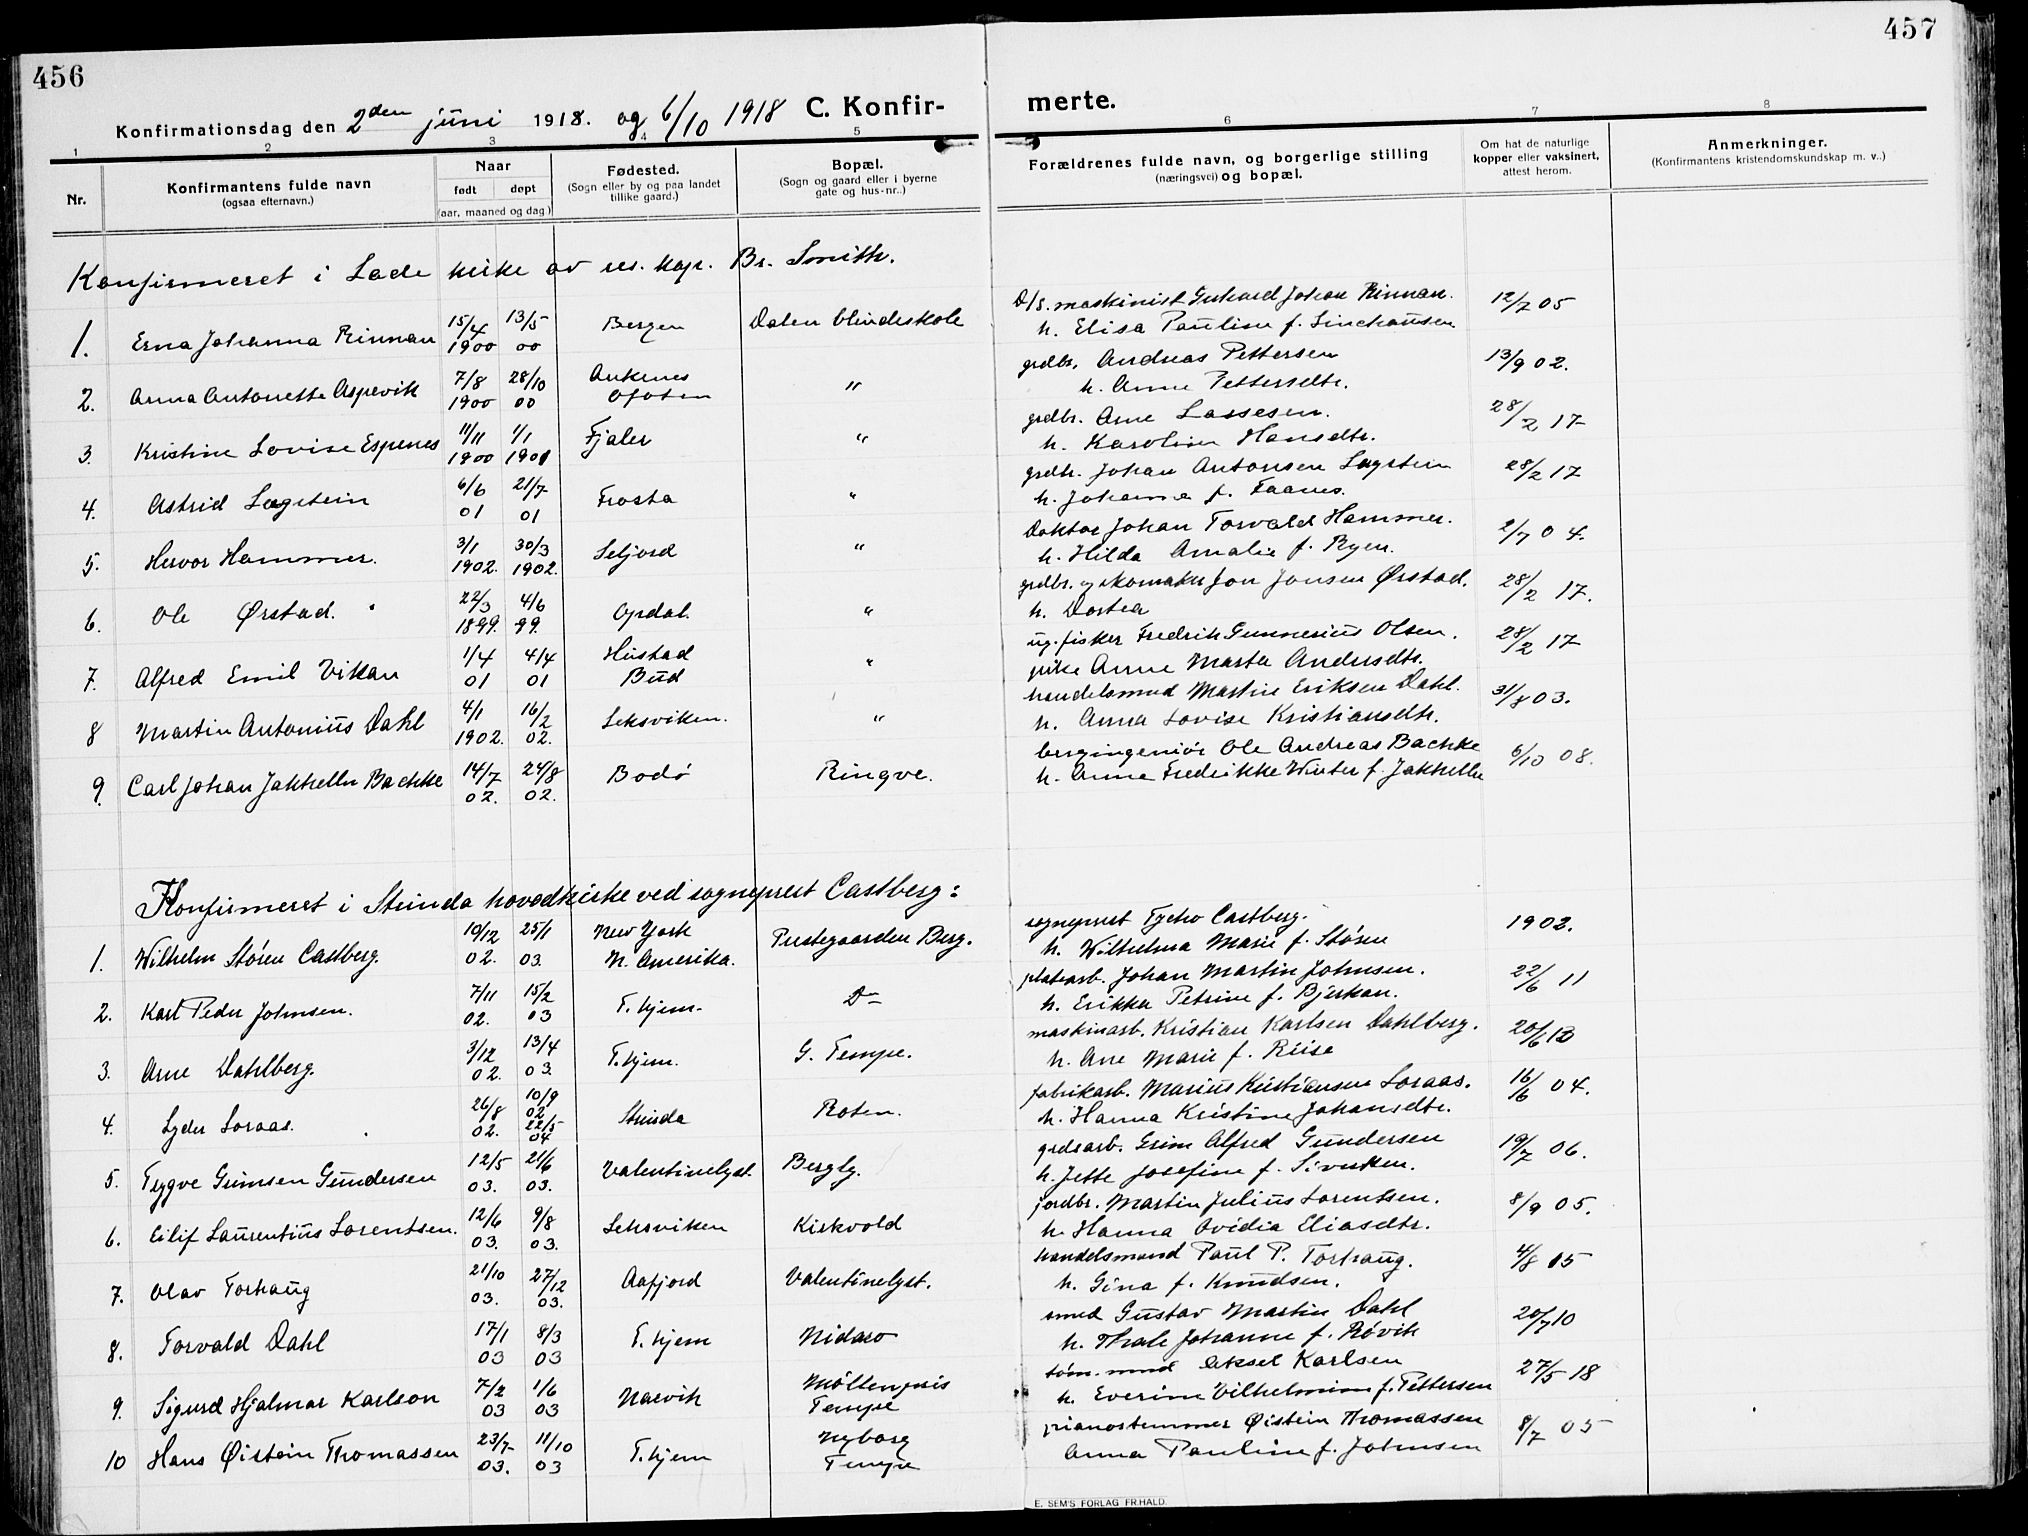 456
457
Konfirmationsdag den 2den juni 1918. og 6/10 1918 C. Konfir-
merte.
1 2 3 4 5 6 7 8
Nr.
Konfirmantens fulde navn
(ogsaa efternavn.)
Naar
født døpt
(aar, maaned og dag)
Fødested.
(Sogn eller by og paa landet
tillike gaard.)
Bopæl.
(Sogn og gaard eller i byerne
gate og hus-nr.)
Forældrenes fulde navn, og borgerlige stilling
(næringsvei) og bopæl.
Om hat de naturlige
kopper eller vaksinert,
attest herom.
Anmerkninger.
(Konfirmantens kristendomskundskap m. v.)
Konfirmeret i Lade kirke av res. kap. Br. Smith.
1. Erna Johanna Rinnan 15/4 1900 13/5 00 Bergen Dalen blindeskole
D/S. maskinist Johan Rinnan.
h. Elisa Pauline f. 12/7 05
2. Anna Antonette Aspevik 7/8 1900 28/10 00 Ankenes Ofoten "
grdbr. Andreas Pettersen
h. Anne Pettersdtr. 13/9 02.
3. Kristine Lovise Espenes 11/11 1900 1/1 1901 Fjaler "
grdbr. Arne Lassesen.
h. Karoline Hansdtr. 28/2 17
4. Astrid Lagstein 6/6 01 21/7 01 Frosta "
grdbr. Johan Antonsen Lagstein
h. Johanna f. Faanes. 28/2 17
5. Hervor Hammer. 3/1 1902. 30/3 1902. Seljord "
Doktor Johan Torvald Hammer.
h. Hilda Amalie f. Ryen. 2/7 04.
6. Ole Ørstad. 22/3 1899. 4/6 99. Opdal. "
grdbr. og skomaker Jon Jonsen Ørstad.
h. Dortea 28/2 17.
7. Alfred Emil Vikan 1/4 01 4/4 01 Hustad Bud "
ug. fisker Fredrik Gunnerius Olsen.
pike Anne Marta Andersdtr. 28/2 17
8 Martin Antonius Dahl 4/1 1902. 16/2 02. Leksviken. "
handelsmnd Martin Eriksen Dahl.
h. Anna Lovise Kristiansdtr. 31/8 03.
9. Carl Johan Jakhelln Bachke 14/7 02. 24/8 02. Bodø Ringve.
bergingeniør Ole Andreas Bachke
h. Anna Fredrikke Winter f. Jakhelln 6/10 08.
Konfirmeret i Strinda hovedkirke ved sogneprest Castberg:
1. Wilhelm Støren Castberg. 19/12 02. 25/1 03. New York N. Amerika. Prestegaarden Berg.
sogneprest Tycho Castberg.
h. Wilhelma Marie f. Støren 1902.
2. Karl Peder Johnsen. 7/11 02. 15/2 03 T.hjem. Do
platearb. Johan Martin Johnsen.
h. Erikka Petrine f. Bjerkan. 22/6 11
3. Arne Dahlberg. 3/12 02. 13/4 03. T.hjem. G. Tempe.
maskinarb. Kristian Karlsen Dahlberg.
h. Ane Marie f. Riise 20/6
4. Lyder Loraas. 26/8 02. 10/9 02 22/5 04 Strinda Roten.
fabrikarb. Marius Kristiansen Loraas.
h. Hanna Kristine Johansdtr. 16/6 04.
5. Trygve Grimsen Gundersen 12/5 03. 21/6 03. Valentinelyst. Bergly.
grdsarb. Grim Alfred Gundersen
h. Jette Josefine f. Sivertsen. 19/7 06.
6. Eilif Laurentius Lorentsen. 12/6 03. 9/8 03. Leksviken Kirkvold
jordbr. Martin Julius Lorentsen.
h. Hanna Ovidia Eliasdtr. 8/9 05.
7. Olav Torhaug 21/10 03. 27/12 03. Aafjord Valentinelyst.
handelsmand Paul P. Torhaug.
h. Gina f. Knudsen. 4/8 15
8. Torvald Dahl 17/1 03 8/3 03 T.hjem Nidaro
smed Gustav Martin Dahl
h. Thale Johanne f. Røvik 20/7 10
9. Sigurd Hjalmar Karlson 7/2 03 1/6 03 Narvik Tempe
tøm.mnd Aksel Karlsen
h. Everine Vilhelmine f. Pettersen 27/5 18
10 Hans Øistein Thomassen 23/7 03. 11/10 03 T.hjem Nyborg Tempe
pianostemmer Øistein Thomassen
Anna Pauline f. Johnsen 8/7 05
E. SEM'S FORLAG FR.HALD.